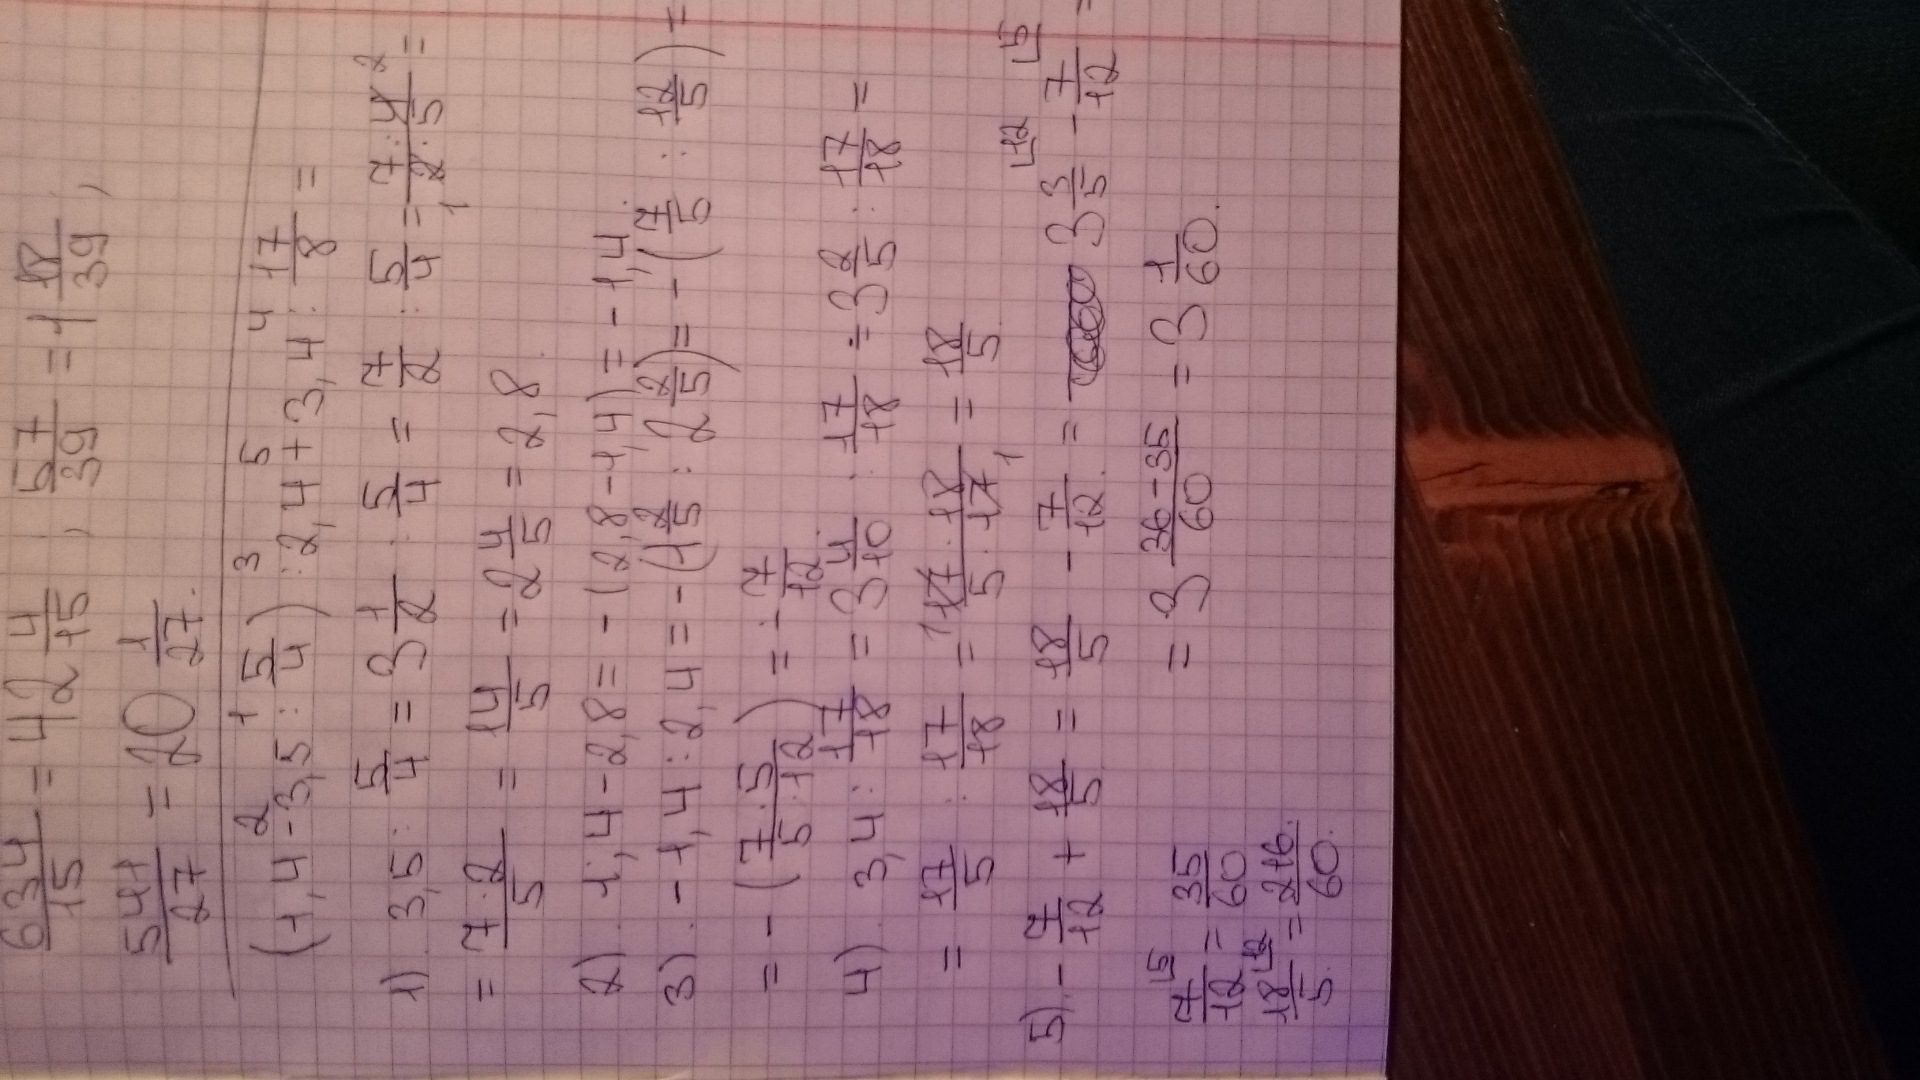 634/15 = 42 4/15 ; 57/39 = 1 18/39 ;
541/27 = 20 1/27.
(1,4 - 3,5 : 5/4) : 2,4 + 3,4 : 17/8 =
1) 3,5 : 5/4 = 3 1/2 : 5/4 = 7/2 : 5/4 = 7·4/2·5 =
= 7·2/5 = 14/5 = 2 4/5 = 2,8
2) 1,4 - 2,8 = -(2,8 - 1,4) = -1,4.
3) -1,4 : 2,4 = -(1 2/5 : 2 2/5) = -(7/5 : 12/5) =
= -(7·5/5·12) = -7/12
4) 3,4 : 17/18 = 3 4/10 : 17/18 = 3 2/5 : 17/18 =
= 17/5 : 17/18 = 17·18/5·17 = 18/5
5) -7/12 + 18/5 = 18/5 - 7/12 = 3 3/5 - 7/12 =
7/12 = 35/60 = 3 36-35/60 = 3 1/60.
18/5 = 216/60.